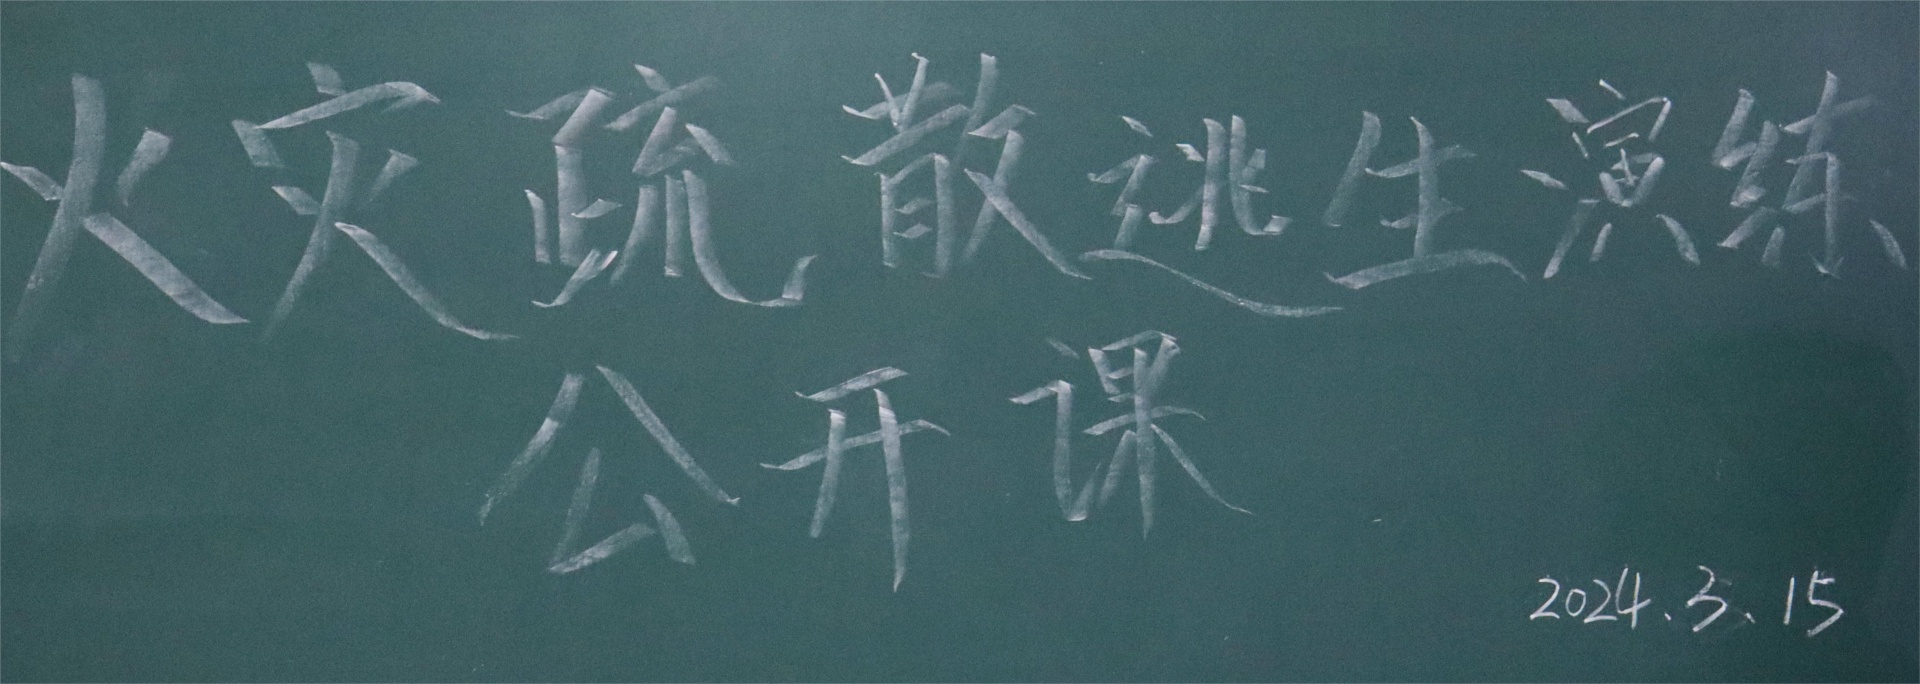 火灾疏散逃生演练
公开课
2024.3.15